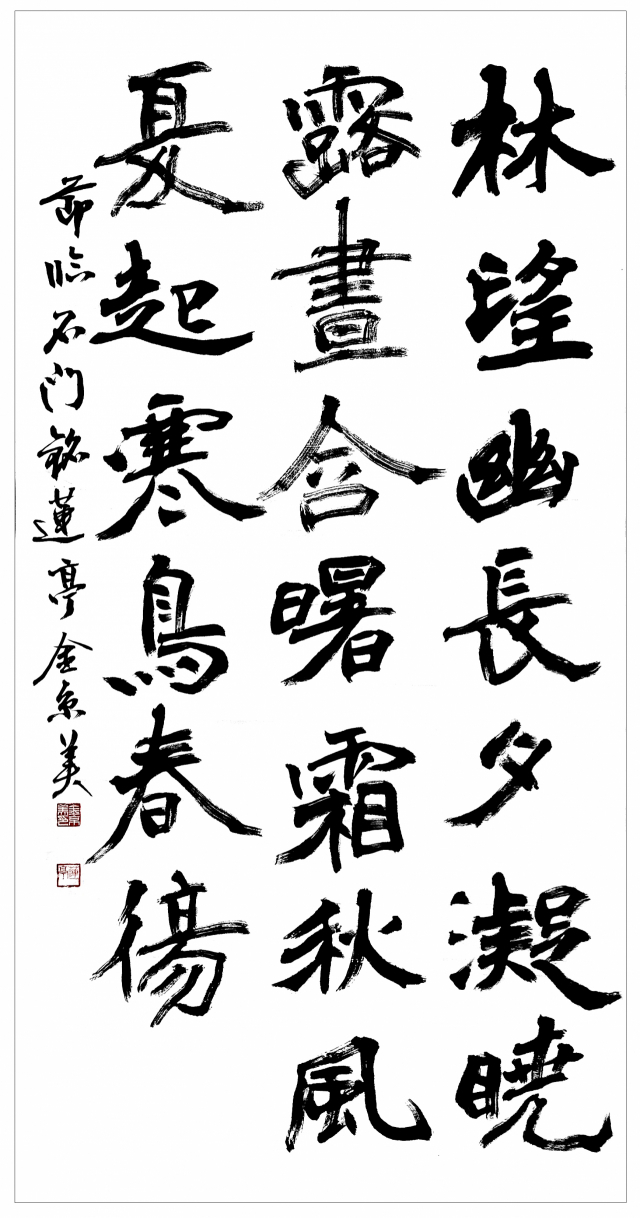 林望幽長夕凝曉
露晝含曙霜秋風
夏起寒鳥春傷
節臨石门銘蓮亭金京美